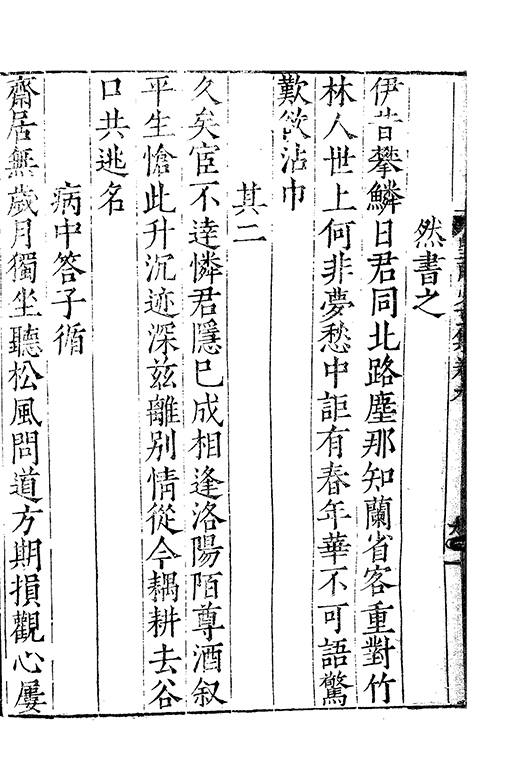 然書之
伊昔攀鱗日君同北路塵那知蘭省客重對竹
林人世上何非夢愁中詎有春年華不可語驚
歎欲沾巾
其二
久矣宦不達憐君隱已成相逢洛陽陌尊酒叙
平生愴此升沉迹深兹離别情從今耦耕去谷
口共逃名
病中答子循
齋居無歲月獨坐聽松風問道方期損觀心屢